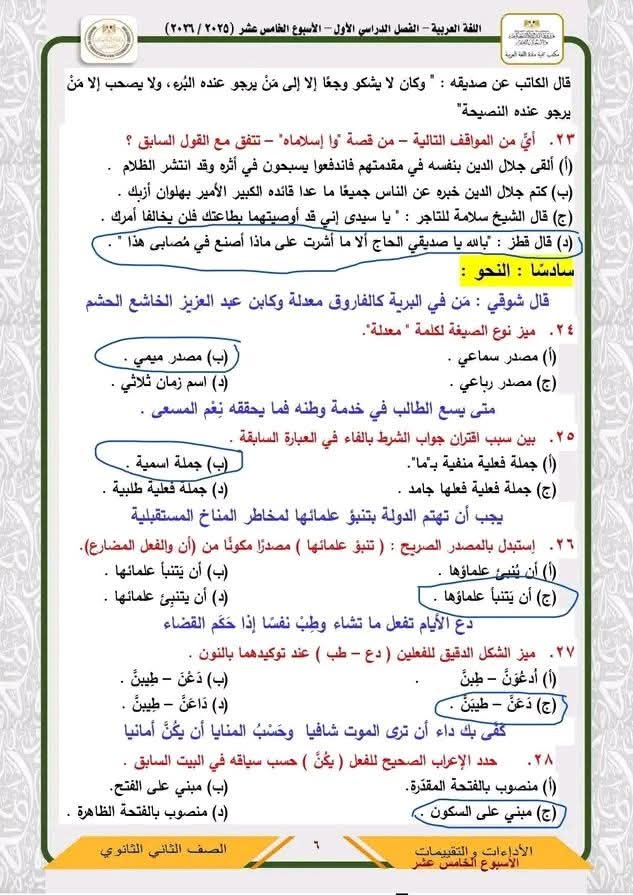 اللغة العربية – الفصل الدراسي الأول – الأسبوع الخامس عشر (٢٠٢٥ / ٢٠٢٦)
مكتب تنمية مادة اللغة العربية
قال الكاتب عن صديقه : " وكان لا يشكو وجعًا إلا إلى مَنْ يرجو عنده البُرء، ولا يصحب إلا مَنْ
يرجو عنده النصيحة"
٢٣. أيٌّ من المواقف التالية – من قصة "وا إسلاماه" – تتفق مع القول السابق ؟
(أ) ألقى جلال الدين بنفسه في مقدمتهم فاندفعوا يسبحون في أثره وقد انتشر الظلام .
(ب) كتم جلال الدين خبره عن الناس جميعًا ما عدا قائده الكبير الأمير بهلوان أزبك .
(ج) قال الشيخ سلامة للتاجر : " يا سيدى إني قد أوصيتهما بطاعتك فلن يخالفا أمرك .
(د) قال قطز : "بالله يا صديقي الحاج ألا ما أشرت على ماذا أصنع في مُصابى هذا " .
سادسًا : النحو :
قال شوقي : مَن في البرية كالفاروق معدلة وكابن عبد العزيز الخاشع الحشم
٢٤. ميز نوع الصيغة لكلمة " معدلة".
(أ) مصدر سماعي . (ب) مصدر ميمي .
(ج) مصدر رباعي . (د) اسم زمان ثلاثي .
متى يسع الطالب في خدمة وطنه فما يحققه نِعْم المسعى .
٢٥. بين سبب اقتران جواب الشرط بالفاء في العبارة السابقة .
(أ) جملة فعلية منفية بـ"ما". (ب) جملة اسمية .
(ج) جملة فعلية فعلها جامد . (د) جملة فعلية طلبية .
يجب أن تهتم الدولة بتنبؤ علمائها لمخاطر المناخ المستقبلية
٢٦. إستبدل بالمصدر الصريح : ( تنبؤ علمائها ) مصدرًا مكونًا من (أن والفعل المضارع).
(أ) أن يُنبئ علماؤها . (ب) أن يَتنبأ علمائها .
(ج) أن يَتنبأ علماؤها . (د) أن يتنبئ علمائها .
دع الأيام تفعل ما تشاء وطِبْ نفسًا إذا حَكَم القضاء
٢٧. ميز الشكل الدقيق للفعلين ( دع – طب ) عند توكيدهما بالنون .
(أ) أدعُوَنَّ – طِبنَّ . (ب) دَعْنَ – طِيبنَّ .
(ج) دَعَنَّ – طيبَنَّ . (د) دَاعَنَّ – طِيبنَّ .
كَفَى بك داء أن ترى الموت شافيا وحَسْبُ المنايا أن يكُنَّ أمانيا
٢٨. حدد الإعراب الصحيح للفعل ( يكُنَّ ) حسب سياقه في البيت السابق .
(أ) منصوب بالفتحة المقدّرة. (ب) مبني على الفتح.
(ج) مبني على السكون . (د) منصوب بالفتحة الظاهرة .
الأداءات والتقييمات ٦ الصف الثاني الثانوي
الأسبوع الخامس عشر